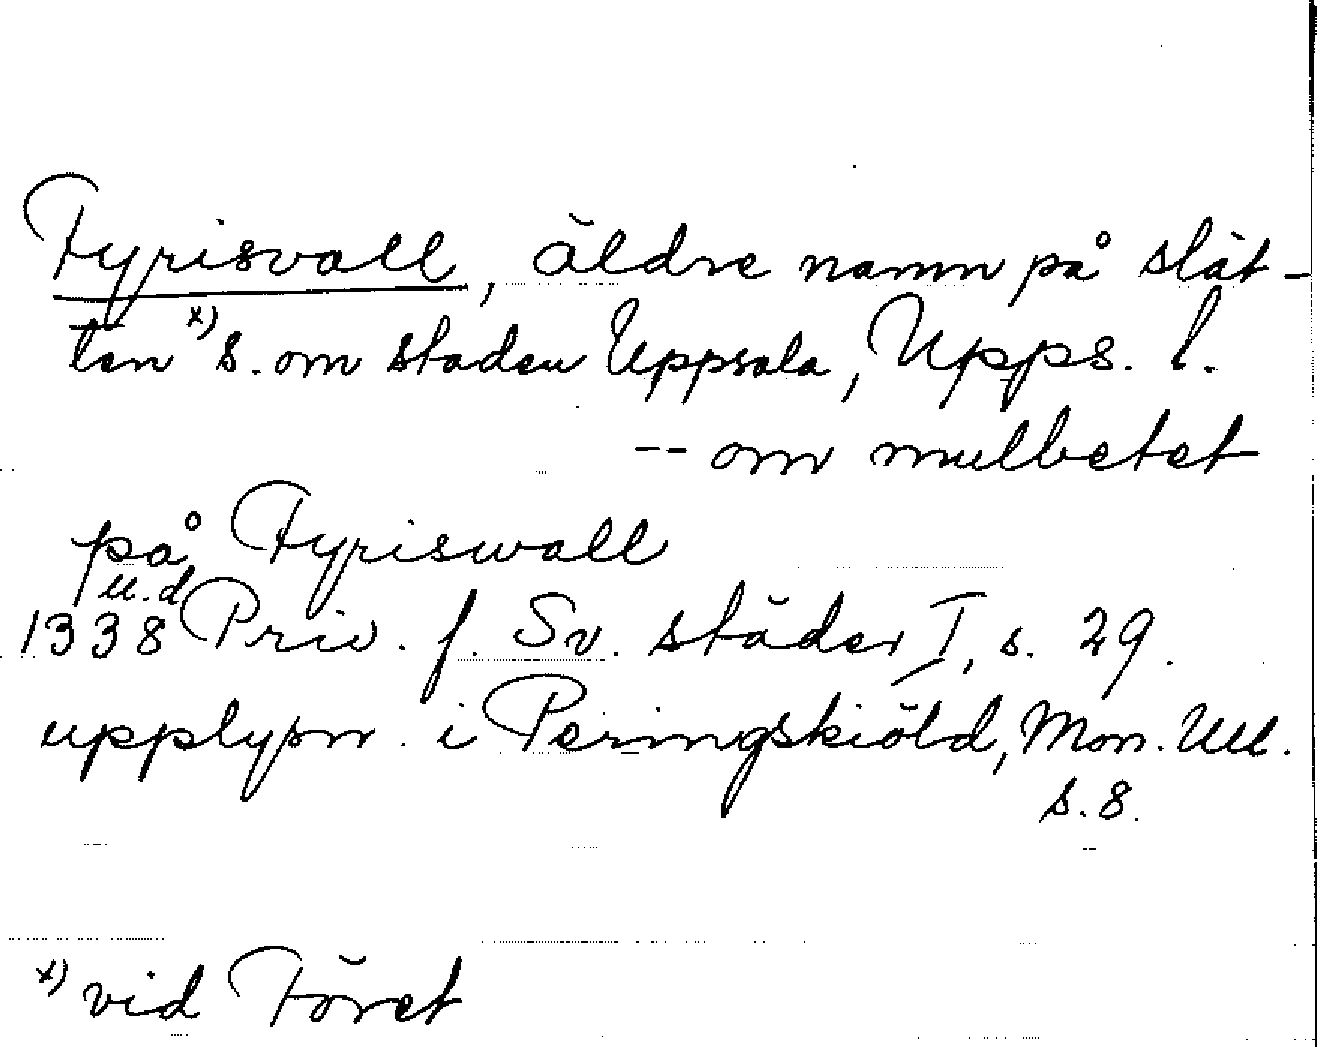 Fyrisvall, äldre namn på slät-
ten x) s. om staden Uppsala, Upps. l.
-- om mulbetet
på Fyriswall
u.d
1338 Priv. f. Sv. städer I, s. 29.
upplysn. i Peringskiöld, Mon. Ull.
s. 8.
x) vid Föret